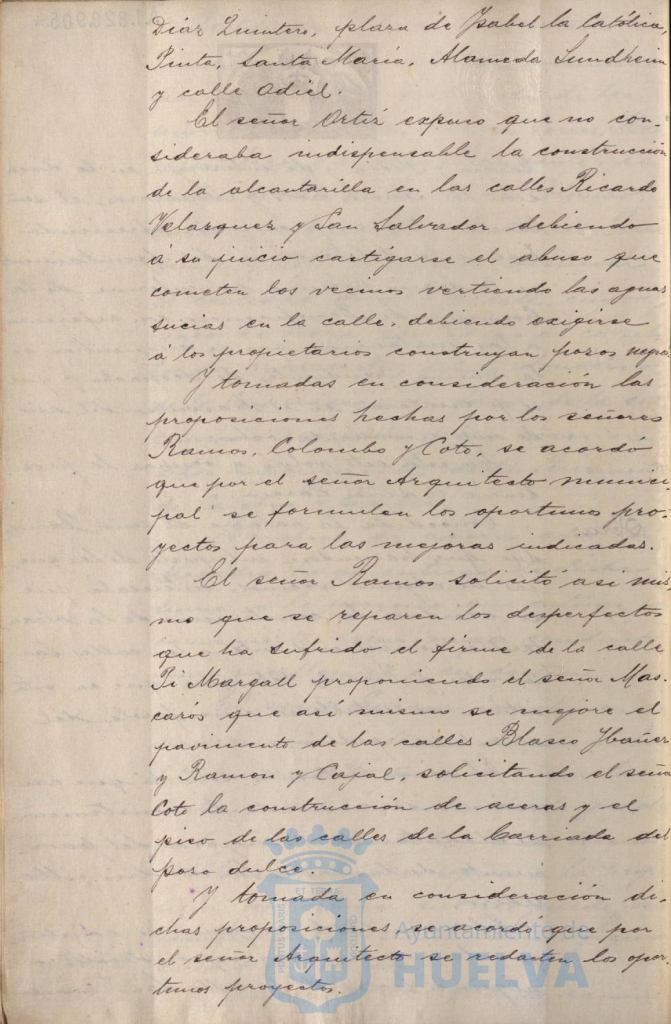 Díaz Quintero, plaza de Ysabel la Católica,
Pinta, Santa María, Alameda Sundheim
y calle Odiel.
El señor Ortiz expuso que no con-
sideraba indispensable la construcción
de la alcantarilla en las calles Ricardo
Velazquez y San Salvador debiendo
á su juicio castigarse el abuso que
cometen los vecinos vertiendo las aguas
sucias en la calle, debiendo exigirse
á los propietarios construyan pozos negros.
Y tomadas en consideración las
proposiciones hechas por los señores
Ramos, Colombo y Coto, se acordó
que por el señor Arquitecto munici-
pal se formulen los oportunos pro-
yectos para las mejoras indicadas.
El señor Ramos solicitó asi mis-
mo que se reparen los desperfectos
que ha sufrido el firme de la calle
Pi Margall proponiendo el señor Mas-
carós que así mismo se mejore el
pavimento de las calles Blasco Ybañez
y Ramon y Cajal, solicitando el señor
Coto la construcción de aceras y el
piso de las calles de la Barriada del
pozo dulce.
Y tomada en consideración di-
chas proposiciones se acordó que por
el señor Arquitecto se redacten los opor-
tunos proyectos.
Ayuntamiento de
HUELVA